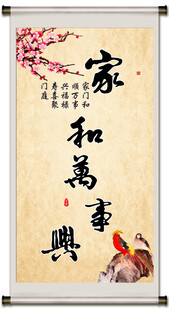 家和萬事興
家门和
顺万事
兴福禄
寿喜聚
门庭